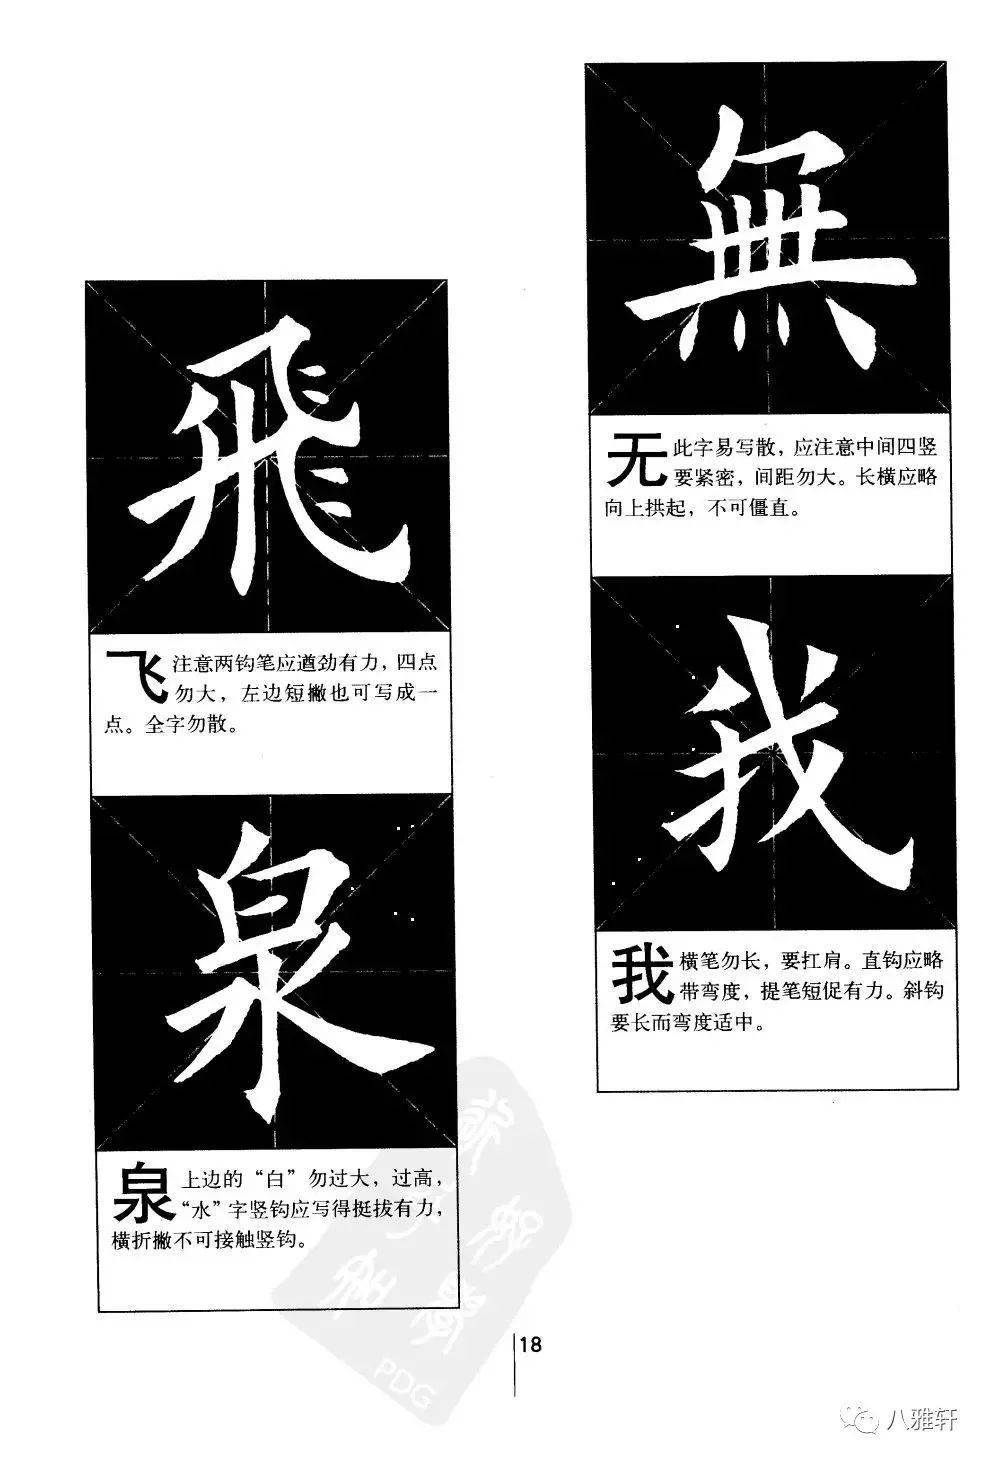 無
无 此字易写散，应注意中间四竖
要紧密，间距勿大。长横应略
向上拱起，不可僵直。
我
我 横笔勿长，要扛肩。直钩应略
带弯度，提笔短促有力。斜钩
要长而弯度适中。
飛
飞 注意两钩笔应遒劲有力，四点
勿大，左边短撇也可写成一
点。全字勿散。
泉
泉 上边的“白”勿过大，过高，
“水”字竖钩应写得挺拔有力，
横折撇不可接触竖钩。
PDG
18
八雅轩